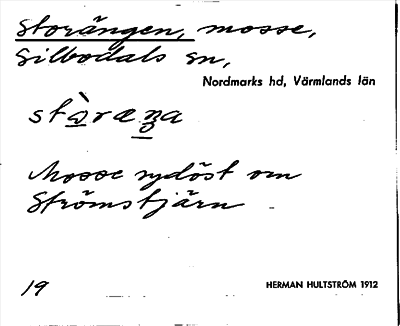 Storängen, mosse,
Silbodals sn,
Nordmarks hd, Värmlands län
Mosse sydöst om
Strömstjärn
19
HERMAN HULTSTRÖM 1912